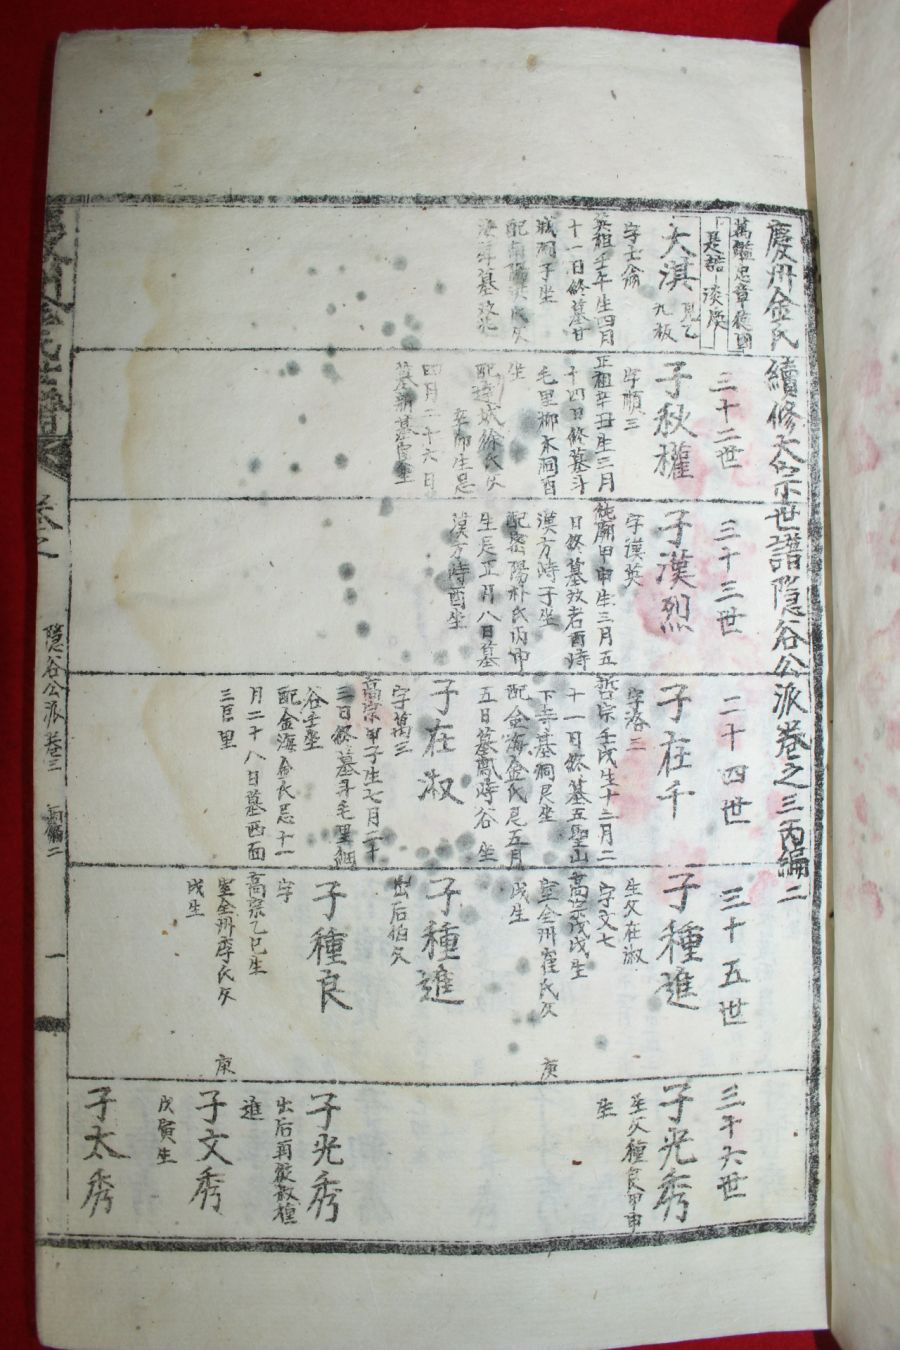 慶州金氏續修大宗世譜隱谷公派卷之三丙編二
大淇
見乙
九板
字士翁
英祖壬午生四月
十一日終墓甘
城洞子坐
三十二世
子秋權
字順三
正祖辛丑生三月
十四日終墓斗
毛里柳木洞酉
坐
配達城徐氏父
辛卯生忌
四月二十六日
三十三世
子漢烈
字漢英
純廟甲申生三月五
漢方峙子坐
配密陽朴氏丙申
生忌正月八日墓
漢方峙酉坐
二十四世
子在千
字洛三
哲宗壬戌生十二月二
十一日終墓五聖山
配金海金氏忌五月
五日墓鳳峙谷 坐
子在淑
字萬三
高宗甲子生七月二十
三日終墓斗毛里綱
谷壬坐
配金海金氏忌十一
月二十八日墓西面
三巨里
三十五世
子種進
生父在淑
字文七
高宗戊戌生
室全州崔氏父 庚
戌生
子種進
出后伯父
子種良
字
高宗乙巳生
室全州李氏父 庚
戌生
三十六世
子光秀
生父種良甲申
生
子光秀
進
子文秀
戊寅生
子太秀
隱谷公派卷三 丙編二
一